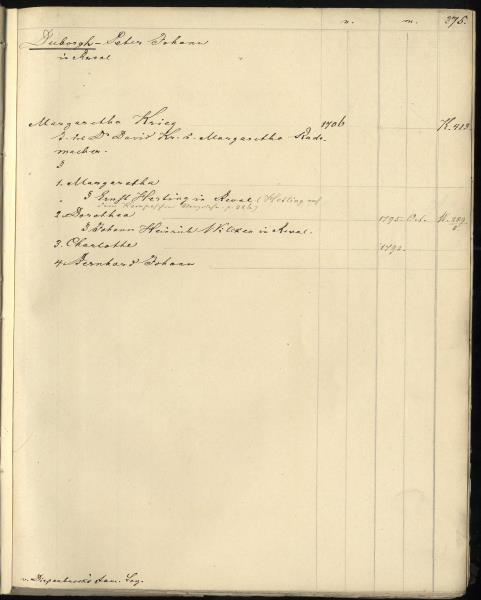 n. m. 375.
Duborgh - Peter Johann
in Reval
Margaretha Krieg 1706 K. 413.
d. Dr David Kr. u. Margaretha Rade-
macher.
1. Margaretha
Ernst Hersting in Reval (Hetling auf
p. 226)
2. Dorothea 1795 Oct. W. 289
Johann Heinrich Wilcken in Reval.
3. Charlotte 1792.
4. Bernhard Johann
v. fam. Leg.